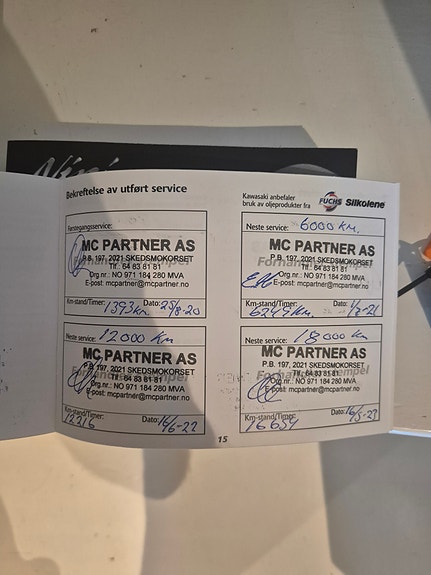 Ninja
Bekreftelse av utført service
Kawasaki anbefaler
bruk av oljeprodukter fra
FUCHS Silkolene
Førstegangsservice:
MC PARTNER AS
P.B. 197, 2021 SKEDSMOKORSET
Tlf.: 64 83 81 81
Org.nr.: NO 971 184 280 MVA
E-post: mcpartner@mcpartner.no
Km-stand/Timer: Dato: 25/8-20
1393km
Neste service: 6000 km.
MC PARTNER AS
P.B. 197, 2021 SKEDSMOKORSET
Tlf.: 64 83 81 81
Org.nr.: NO 971 184 280 MVA
E-post: mcpartner@mcpartner.no
Km-stand/Timer: Dato:
6249km.
Neste service: 12000 km
MC PARTNER AS
P.B. 197, 2021 SKEDSMOKORSET
Tlf.: 64 83 81 81
Org.nr.: NO 971 184 280 MVA
E-post: mcpartner@mcpartner.no
Km-stand/Timer: Dato: 16/6-22
12216
Neste service: 18000 km
MC PARTNER AS
P.B. 197, 2021 SKEDSMOKORSET
Tlf.: 64 83 81 81
Org.nr.: NO 971 184 280 MVA
E-post: mcpartner@mcpartner.no
Km-stand/Timer: Dato: 16/5-23
16654
15